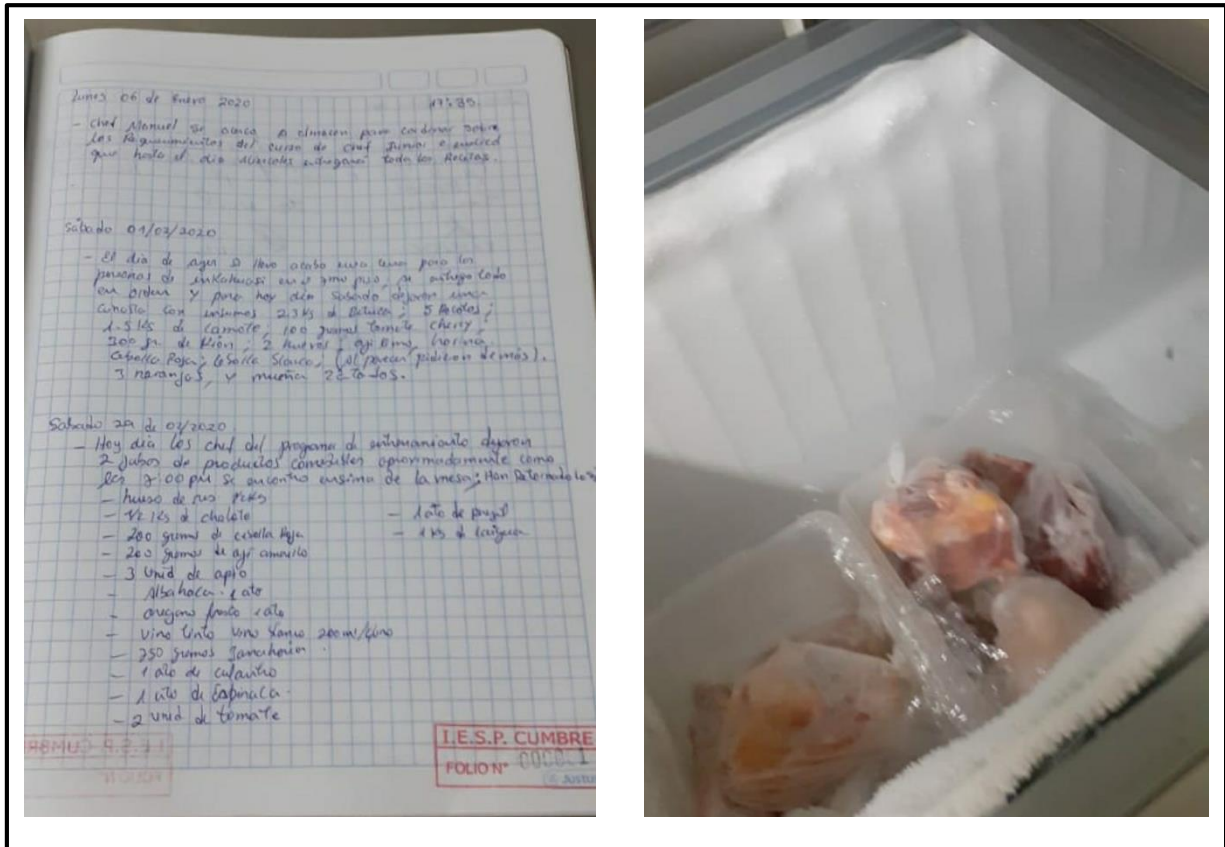 Lunes 06 de Enero 2020 17:35
- Chef Manuel se acerco a almacen para cordinar sobre
los Requerimientos del curso de chef Junior e
que hasta el dia miercoles entregara todas las Recetas.
Sábado 01/02/2020
- El dia de ayer se llevo acabo una cena para las
personas de en el piso, se entrego todo
en orden y para hoy dia Sabado dejaron una
canasta con insumos 2.3 kg de ; 5
1.5 kg de camote; 100 gramos tomate cherry,
300 gr. de Kión; 2 huevos; aji limo, harina,
Cebolla Roja; cebolla Blanca, (al parecer pidieron demás).
3 naranjas, y muña 2 atados.
Sabado 29 de 02/2020
- Hoy dia los chef del programa de entrenamiento dejaron
2 de productos comestibles aproximadamente como
las 7:00 pm se encontro ensima de la mesa; Han Retornado
- hueso de res
- 1/2 kg de
- 200 gramos de cebolla Roja
- 200 gramos de aji amarillo
- 3 unid de apio
- Albahaca - 1 ato
- oregano fresco 1 ato
- vino tinto vino blanco 200ml/
- 250 gramos Zanahoria
- 1 ato de culantro
- 1 ato de Espinaca
- 2 unid de tomate
- 1 ato de perejil
- 1 kg de
I.E.S.P. CUMBRE
FOLIO N°